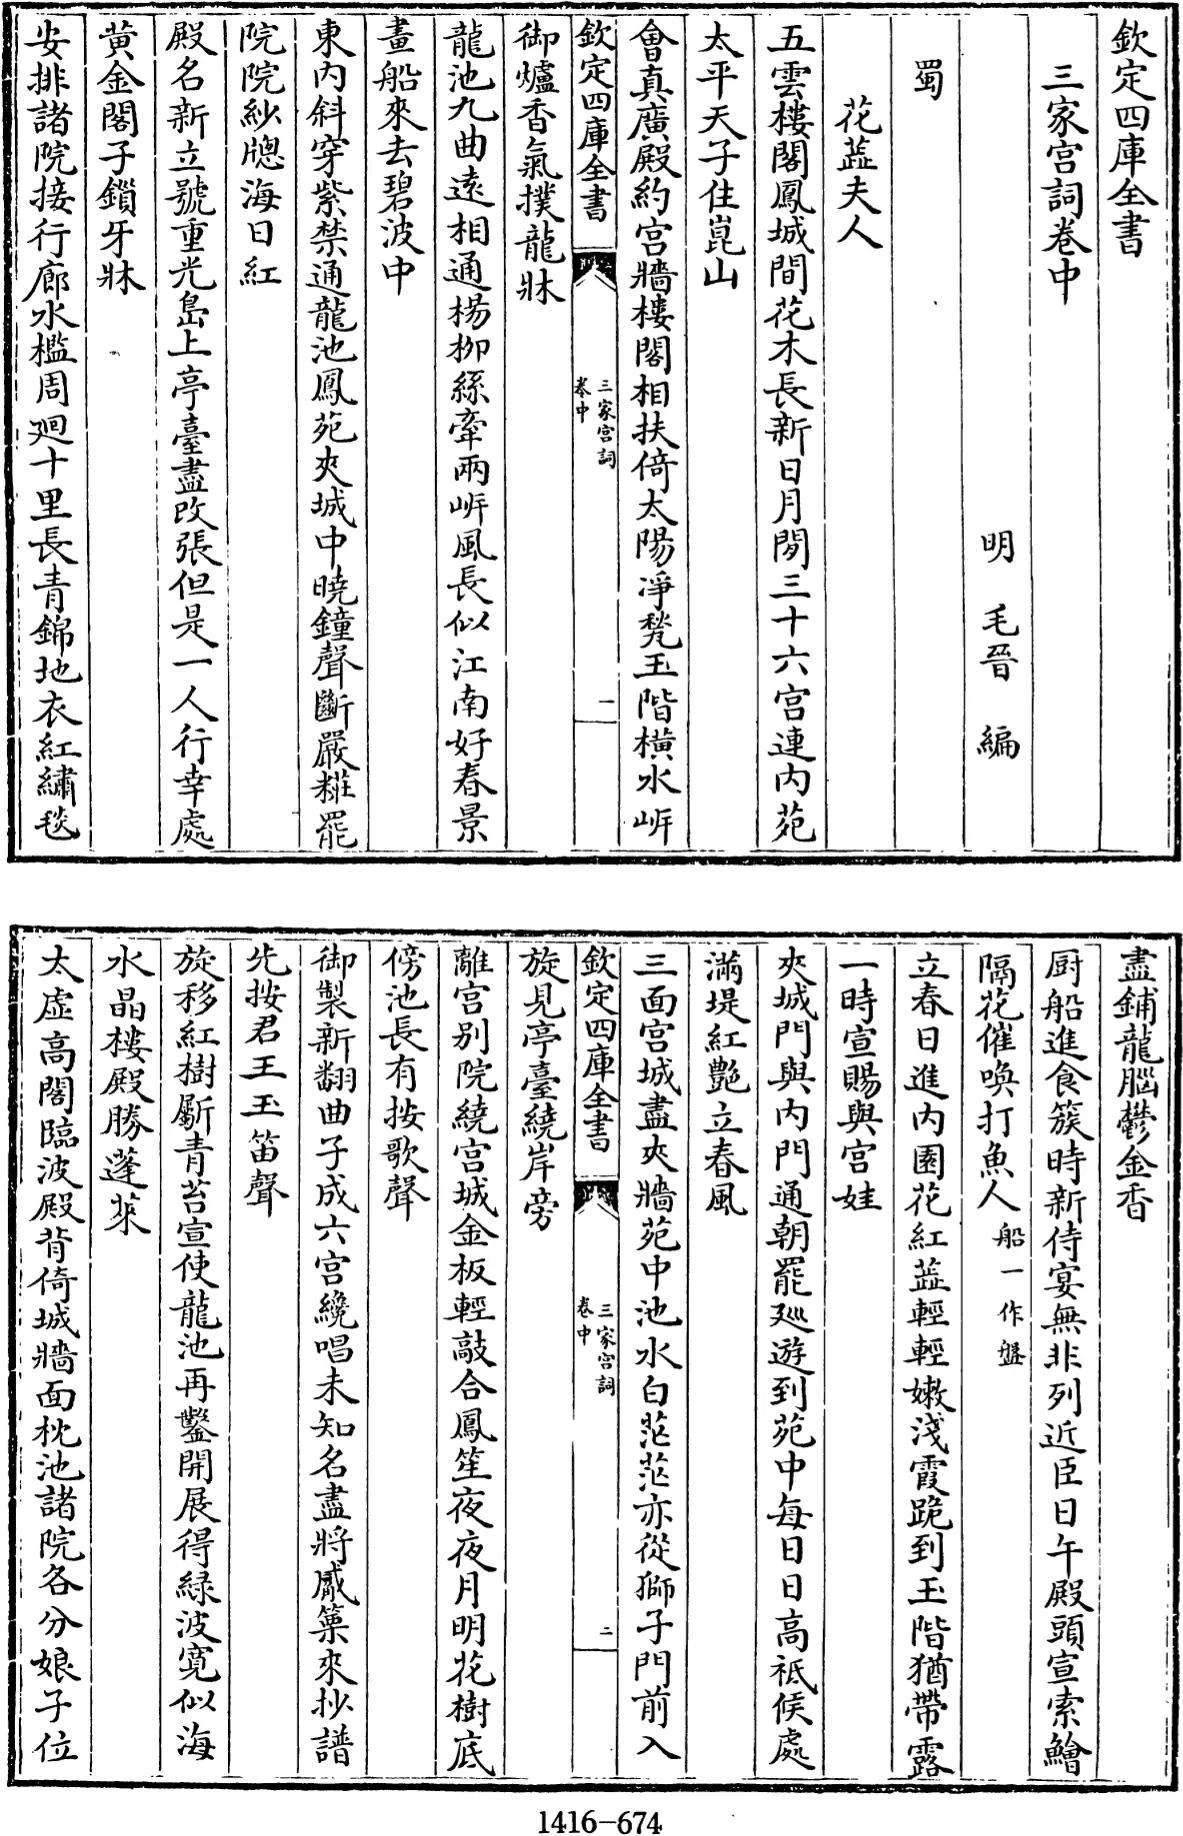 欽定四庫全書
三家宮詞卷中
明 毛晉 編
蜀
花蕋夫人
五雲樓閣鳳城間花木長新日月閒三十六宮連内苑
太平天子住崑山
會真廣殿約宮牆樓閣相扶倚太陽淨甃玉階橫水岍
御爐香氣撲龍牀
欽定四庫全書
三家宮詞
卷中
一
龍池九曲遠相通楊栁絲牽兩岍風長似江南好春景
畫船來去碧波中
東内斜穿紫禁通龍池鳳苑夾城中曉鐘聲斷嚴糚罷
院院紗牕海日紅
殿名新立號重光島上亭臺盡改張但是一人行幸處
黄金閣子鎖牙牀
安排諸院接行廊水檻周迴十里長青錦地衣紅繡毯
盡鋪龍腦鬱金香
厨船進食簇時新侍宴無非列近臣日午殿頭宣索鱠
隔花催喚打魚人船一作盤
立春日進内園花紅蕋輕輕嫩淺霞跪到玉階猶帶露
一時宣賜與宮娃
夾城門與内門通朝罷廵遊到苑中每日日高祗候處
滿堤紅艷立春風
三面宮城盡夾牆苑中池水白茫茫亦從獅子門前入
旋見亭臺繞岸旁
欽定四庫全書
三家宮詞
卷中
二
離宮别院繞宮城金板輕敲合鳳笙夜夜月明花樹底
傍池長有按歌聲
御製新翻曲子成六宮纔唱未知名盡將觱篥來抄譜
先按君王玉笛聲
旋移紅樹斸青苔宣使龍池再鑿開展得緑波寛似海
水晶樓殿勝蓬萊
太虚高閣臨波殿背倚城牆面枕池諸院各分娘子位
1416-674